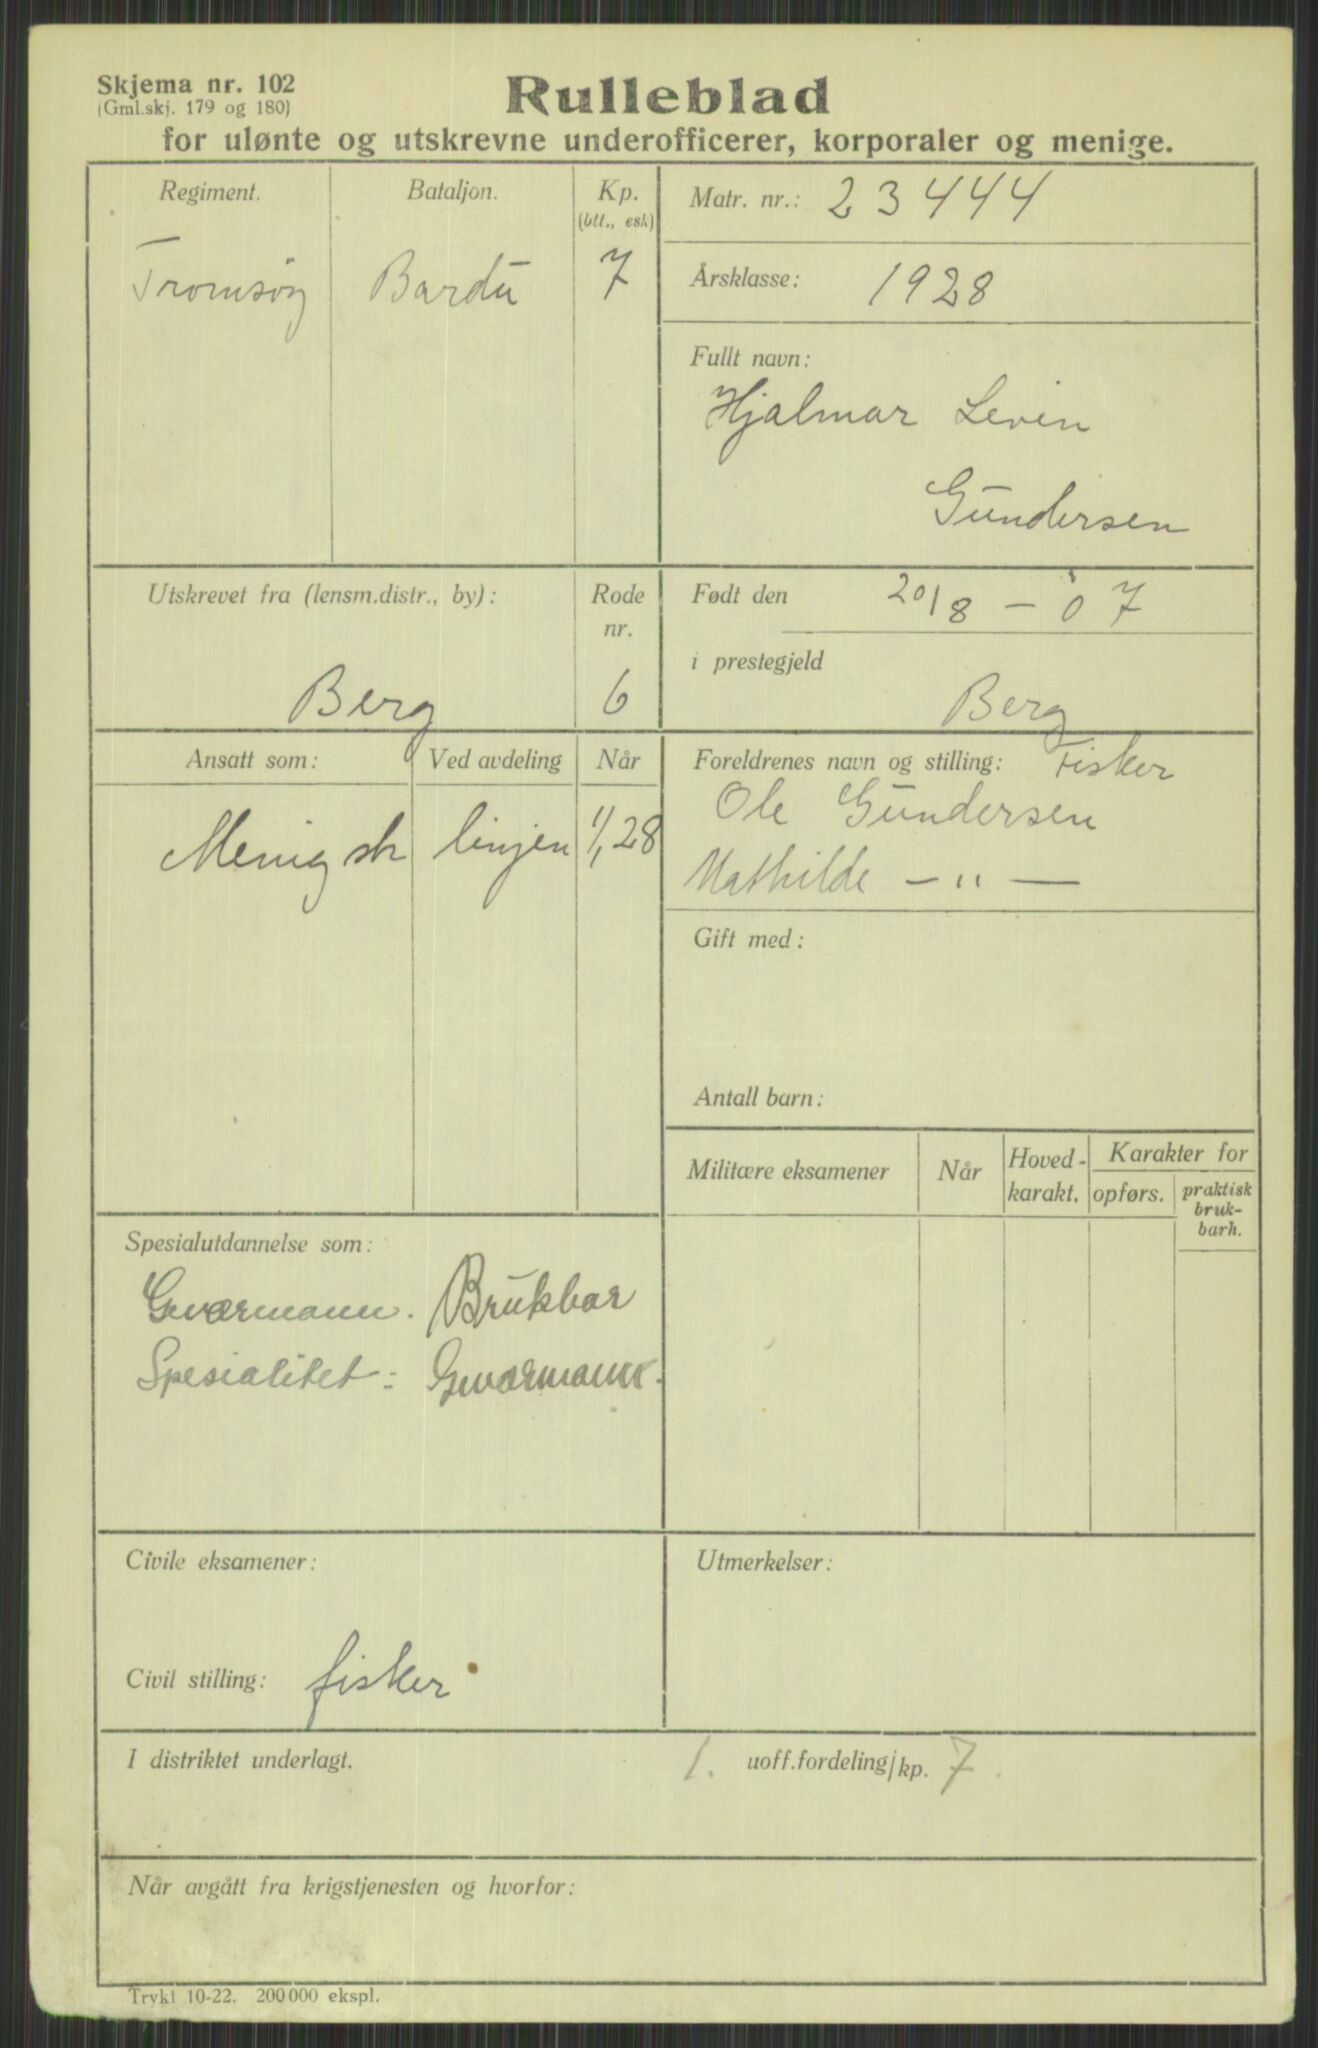 Skjema nr. 102
(Gml.skj. 179 og 180)
Rulleblad
for ulønte og utskrevne underofficerer, korporaler og menige.
Regiment.
Bataljon.
Kp.
(btl., esk)
Tromsøg
Bardu
7
Matr. nr.: 23444
Årsklasse: 1928
Fullt navn:
Hjalmar Levin
Gundersen
Utskrevet fra (lensm.distr., by):
Berg
Rode
nr.
6
Født den 20/8 - 07
i prestegjeld
Berg
Ansatt som:
Ved avdeling
Når
Menig sk
linjen
1/1 28
Foreldrenes navn og stilling: Fisker
Ole Gundersen
Mathilde — " —
Gift med:
Antall barn:
Militære eksamener
Når
Hoved-
karakt.
Karakter for
opførs.
praktisk
bruk-
barh.
Spesialutdannelse som:
Gværmann. Brukbar
Spesialitet: Gværmann.
Civile eksamener:
Civil stilling: fisker
Utmerkelser:
I distriktet underlagt.
1. uoff.fordeling/kp. 7.
Når avgått fra krigstjenesten og hvorfor:
Trykt 10-22. 200 000 ekspl.